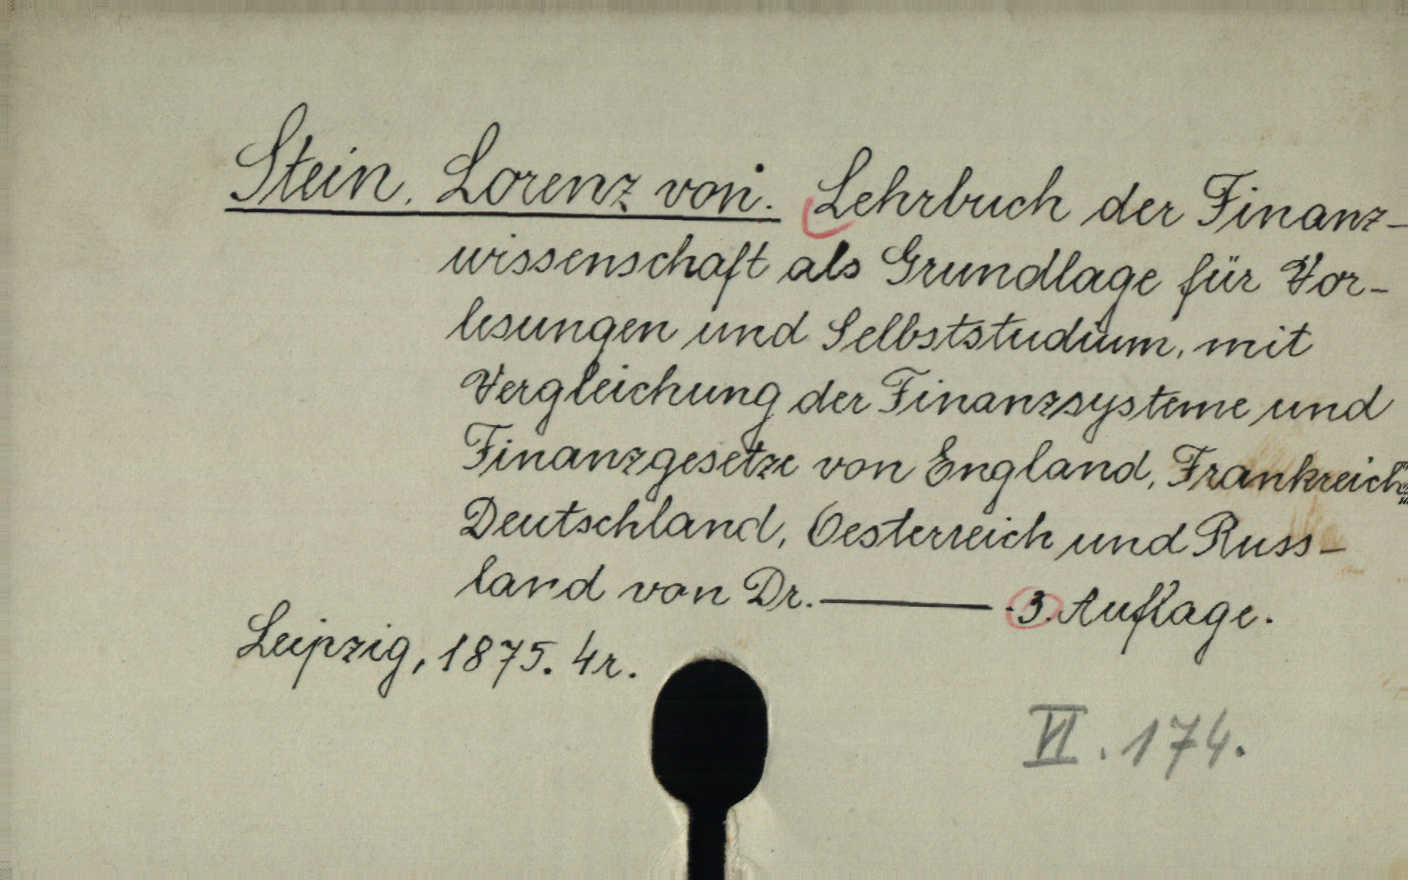 Stein, Lorenz von. Lehrbuch der Finanz-
wissenschaft als Grundlage für Vor-
lesungen und Selbststudium, mit
Vergleichung der Finanzsysteme und
Finanzgesetze von England, Frankreich,
Deutschland, Oesterreich und Russ-
land von Dr. ——— 3. Auflage.
Leipzig, 1875. 4r.
VI. 174.